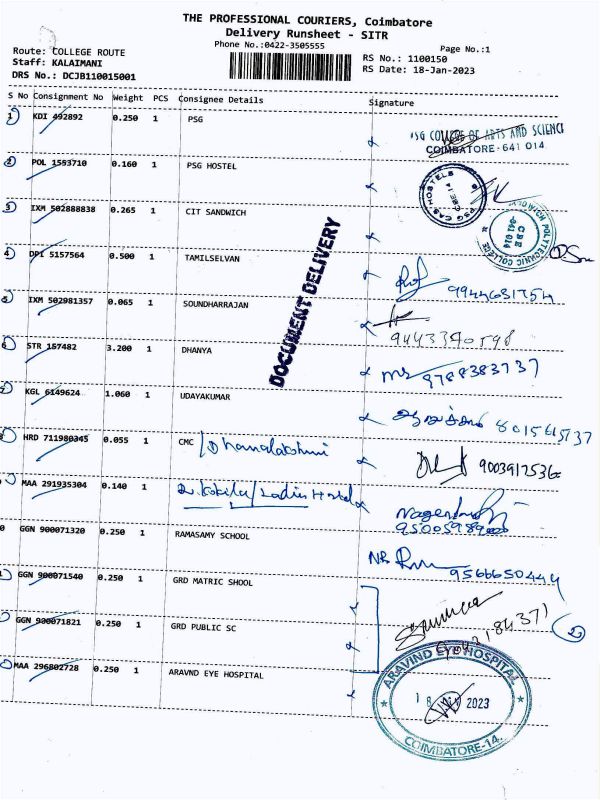 THE PROFESSIONAL COURIERS, Coimbatore
Delivery Runsheet - SITR
Phone No.:0422-3505555
Page No.:1
Route: COLLEGE ROUTE
Staff: KALAIMANI
DRS No.: DCJB110015001
RS No.: 1100150
RS Date: 18-Jan-2023
S No Consignment No Weight PCS Consignee Details Signature
1 KDI 492892 0.250 1 PSG
PSG COLLEGE OF ARTS AND SCIENCE
COIMBATORE-641 014.
2 POL 1553710 0.160 1 PSG HOSTEL
PSG CAS HOSTELS
3 IXM 502888838 0.265 1 CIT SANDWICH
POLYTECHNIC COLLEGE
CBE
641 014
4 DPI 5157564 0.500 1 TAMILSELVAN
DOCUMENT DELIVERY
5 IXM 502981357 0.065 1 SOUNDHARRAJAN
9443390598
6 STR 157482 3.200 1 DHANYA
9788383737
7 KGL 6149624 1.060 1 UDAYAKUMAR
8 HRD 711980345 0.055 1 CMC / Dhanalakshmi
MAA 291935304 0.140 1 / Ladies Hostel
0 GGN 900071320 0.250 1 RAMASAMY SCHOOL
9566650444
GGN 900071540 0.250 1 GRD MATRIC SHOOL
GGN 900071821 0.250 1 GRD PUBLIC SC
MAA 296802728 0.250 1 ARAVND EYE HOSPITAL
ARAVIND EYE HOSPITAL
18 2023
COIMBATORE-14.